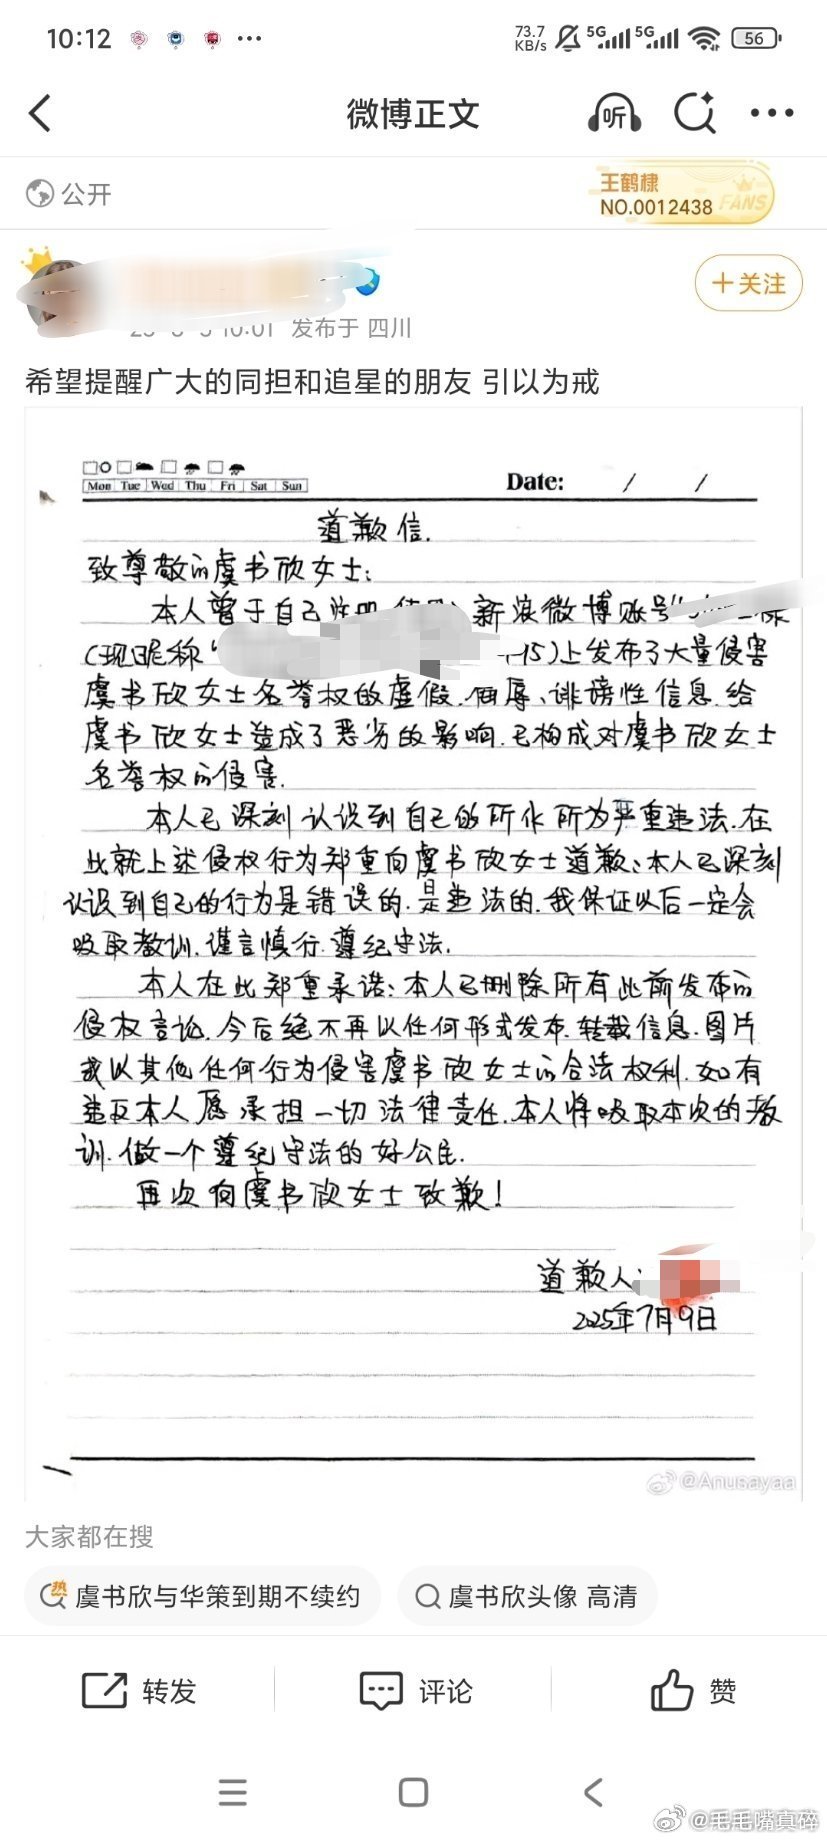 10:12
73.7
KB/s
5G
5G
56
微博正文
听
公开
王鹤棣
NO.0012438
FANS
+关注
10:01 发布于 四川
希望提醒广大的同担和追星的朋友 引以为戒
Mon Tue Wed Thu Fri Sat Sun
Date: / /
道歉信.
致尊敬的虞书欣女士:
本人曾于自己注册 新浪微博账号“
(现昵称“ 15)上发布了大量侵害
虞书欣女士名誉权的虚假.侮辱、诽谤性信息.给
虞书欣女士造成了恶劣的影响.已构成对虞书欣女士
名誉权的侵害.
本人已深刻认识到自己的所作所为严重违法.在
此就上述侵权行为郑重向虞书欣女士道歉:本人已深刻
认识到自己的行为是错误的.是违法的.我保证以后一定会
吸取教训.谨言慎行.遵纪守法.
本人在此郑重承诺:本人已删除所有此前发布的
侵权言论.今后绝不再以任何形式发布.转载信息.图片
或以其他任何行为侵害虞书欣女士的合法权利.如有
违反本人愿承担一切法律责任.本人将吸取本次的教
训.做一个遵纪守法的好公民.
再次向虞书欣女士致歉!
道歉人:
2025年7月9日
@Anusayaa
大家都在搜
热
虞书欣与华策到期不续约
虞书欣头像 高清
转发
评论
赞
@毛毛嘴真碎